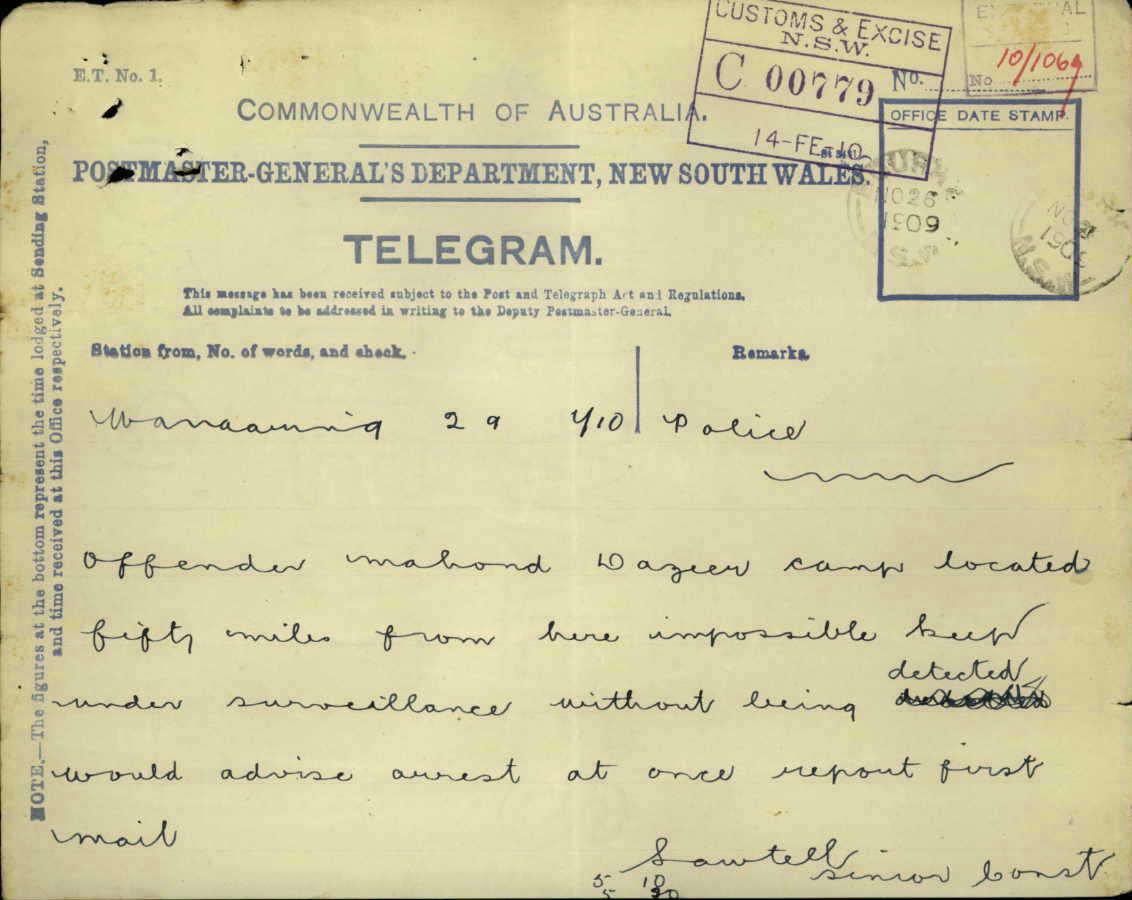 CUSTOMS & EXCISE
N.S.W.
C 00779
14-FE-10
10/1069
No
E.T. No. 1.
No.
COMMONWEALTH OF AUSTRALIA.
OFFICE DATE STAMP.
POSTMASTER-GENERAL'S DEPARTMENT, NEW SOUTH WALES.
NO 26
1909
N.S.W
TELEGRAM.
This message has been received subject to the Post and Telegraph Act and Regulations.
All complaints to be addressed in writing to the Deputy Postmaster-General.
Station from, No. of words, and check.
Remarks
Wanaaring 29 4/10 Police
Offender mahond Dazeer camp located
fifty miles from here impossible keep
under surveillance without being detected
would advise arrest at once report first
mail
Sawtell
Senior Const
5 10
5 30
NOTE.—The figures at the bottom represent the time lodged at Sending Station,
and time received at this Office respectively.